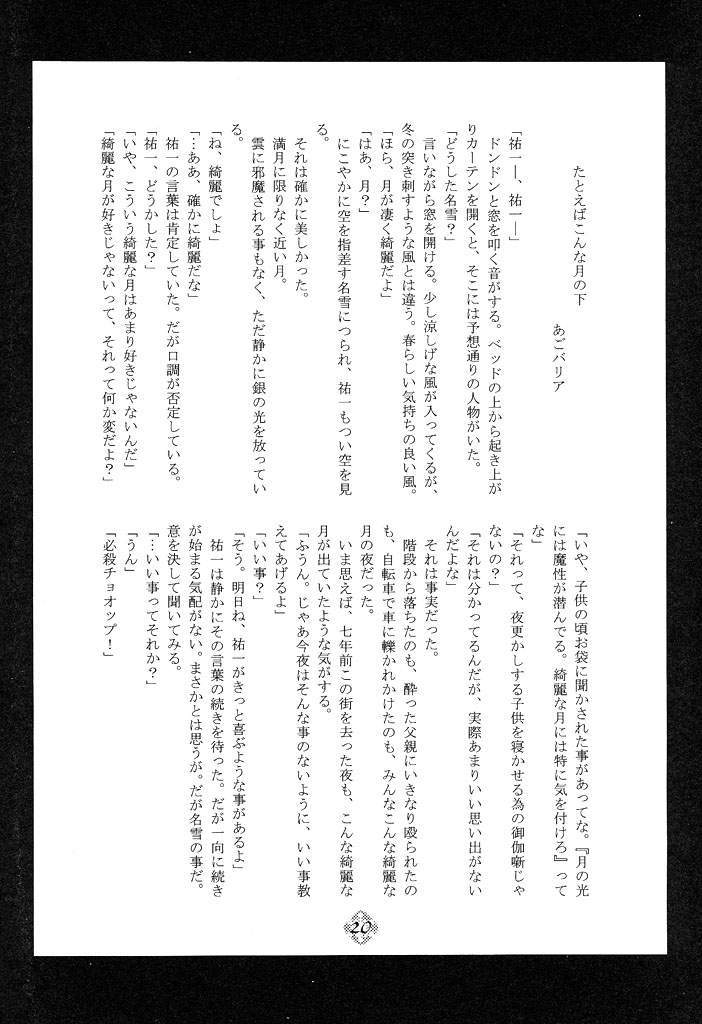 たとえばこんな月の下
あごバリア
「祐一―、祐一―」
　ドンドンと窓を叩く音がする。ベッドの上から起き上が
りカーテンを開くと、そこには予想通りの人物がいた。
「どうした名雪？」
　言いながら窓を開ける。少し涼しげな風が入ってくるが、
冬の突き刺すような風とは違う。春らしい気持ちの良い風。
「ほら、月が凄く綺麗だよ」
「はあ、月？」
　にこやかに空を指差す名雪につられ、祐一もつい空を見
る。
　それは確かに美しかった。
　満月に限りなく近い月。
　雲に邪魔される事もなく、ただ静かに銀の光を放ってい
る。
「ね、綺麗でしょ」
「…ああ、確かに綺麗だな」
　祐一の言葉は肯定していた。だが口調が否定している。
「祐一、どうかした？」
「いや、こういう綺麗な月はあまり好きじゃないんだ」
「綺麗な月が好きじゃないって、それって何か変だよ？」
「いや、子供の頃お袋に聞かされた事があってな。『月の光
には魔性が潜んでる。綺麗な月には特に気を付けろ』って
な」
「それって、夜更かしする子供を寝かせる為の御伽噺じゃ
ないの？」
「それは分かってるんだが、実際あまりいい思い出がない
んだよな」
　それは事実だった。
　階段から落ちたのも、酔った父親にいきなり殴られたの
も、自転車で車に轢かれかけたのも、みんなこんな綺麗な
月の夜だった。
　いま思えば、七年前この街を去った夜も、こんな綺麗な
月が出ていたような気がする。
「ふうん。じゃあ今夜はそんな事のないように、いい事教
えてあげるよ」
「いい事？」
「そう。明日ね、祐一がきっと喜ぶような事があるよ」
　祐一は静かにその言葉の続きを待った。だが一向に続き
が始まる気配がない。まさかとは思うが。だが名雪の事だ。
意を決して聞いてみる。
「…いい事ってそれか？」
「うん」
「必殺チョオップ！」
20